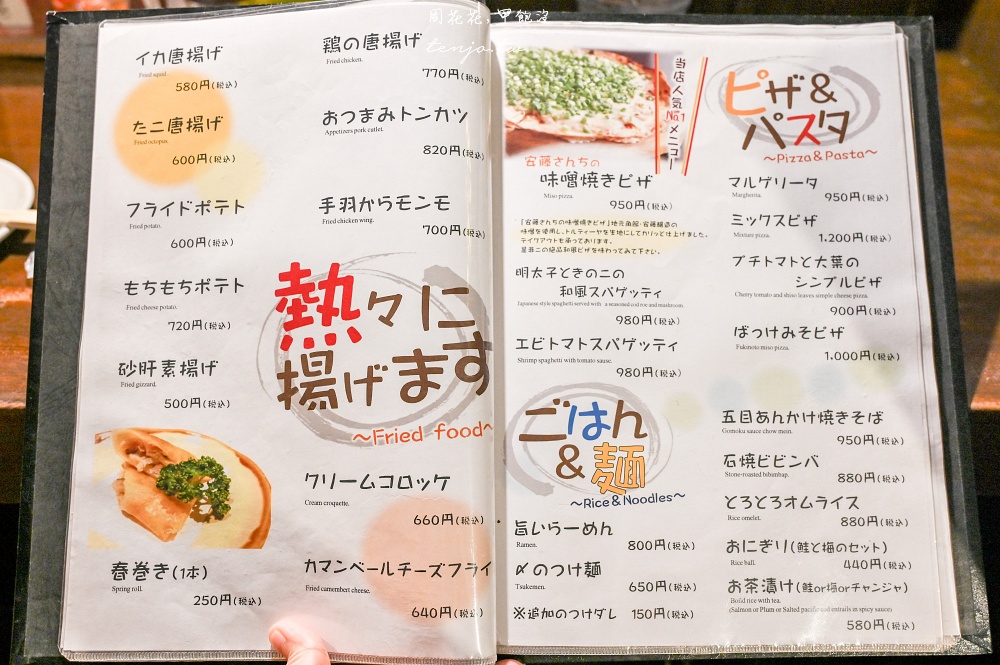 周花花，甲飽沒
tenjo.tw
イカ唐揚げ
Fried squid.
580円(税込)
たこ唐揚げ
Fried octopus.
600円(税込)
フライドポテト
Fried potato.
600円(税込)
もちもちポテト
Fried cheese potato.
720円(税込)
砂肝素揚げ
Fried gizzard.
500円(税込)
春巻き(1本)
Spring roll.
250円(税込)
鶏の唐揚げ
Fried chicken.
770円(税込)
おつまみトンカツ
Appetizers pork cutlet.
820円(税込)
手羽からモンモ
Fried chicken wing.
700円(税込)
熱々に
揚げます
～Fried food～
クリームコロッケ
Cream croquette.
660円(税込)
カマンベールチーズフライ
Fried camembert cheese.
640円(税込)
当店人気
No.1
メニュー
安藤さんちの
味噌焼きピザ
Miso pizza.
950円(税込)
「安藤さんちの味噌焼きピザ」地元角館・安藤醸造の
味噌を使用し、トルティーヤを生地にしてカリッと仕上げました。
テイクアウトも承っております。
是非この絶品和風ピザを味わってみて下さい。
明太子ときのこの
和風スパゲッティ
Japanese style spaghetti served with a seasoned cod roe and mushroom.
980円(税込)
エビトマトスパゲッティ
Shrimp spaghetti with tomato sauce.
980円(税込)
ごはん
&麺
～Rice&Noodles～
旨いらーめん
Ramen.
800円(税込)
〆のつけ麺
Tsukemen.
650円(税込)
※追加のつけダレ 150円(税込)
ピザ&
パスタ
～Pizza&Pasta～
マルゲリータ
Margherita.
950円(税込)
ミックスピザ
Mixture pizza.
1,200円(税込)
プチトマトと大葉の
シンプルピザ
Cherry tomato and shiso leaves simple cheese pizza.
900円(税込)
ばっけみそピザ
Fukinoto miso pizza.
1,000円(税込)
五目あんかけ焼きそば
Gomoku sauce chow mein.
950円(税込)
石焼ビビンバ
Stone-roasted bibimbap.
880円(税込)
とろとろオムライス
Rice omelet.
880円(税込)
おにぎり(鮭と梅のセット)
Rice ball.
440円(税込)
お茶漬け(鮭or梅orチャンジャ)
Boild rice with tea.
(Salmon or Plum or Salted pacific cod entrails in spicy sauce)
580円(税込)